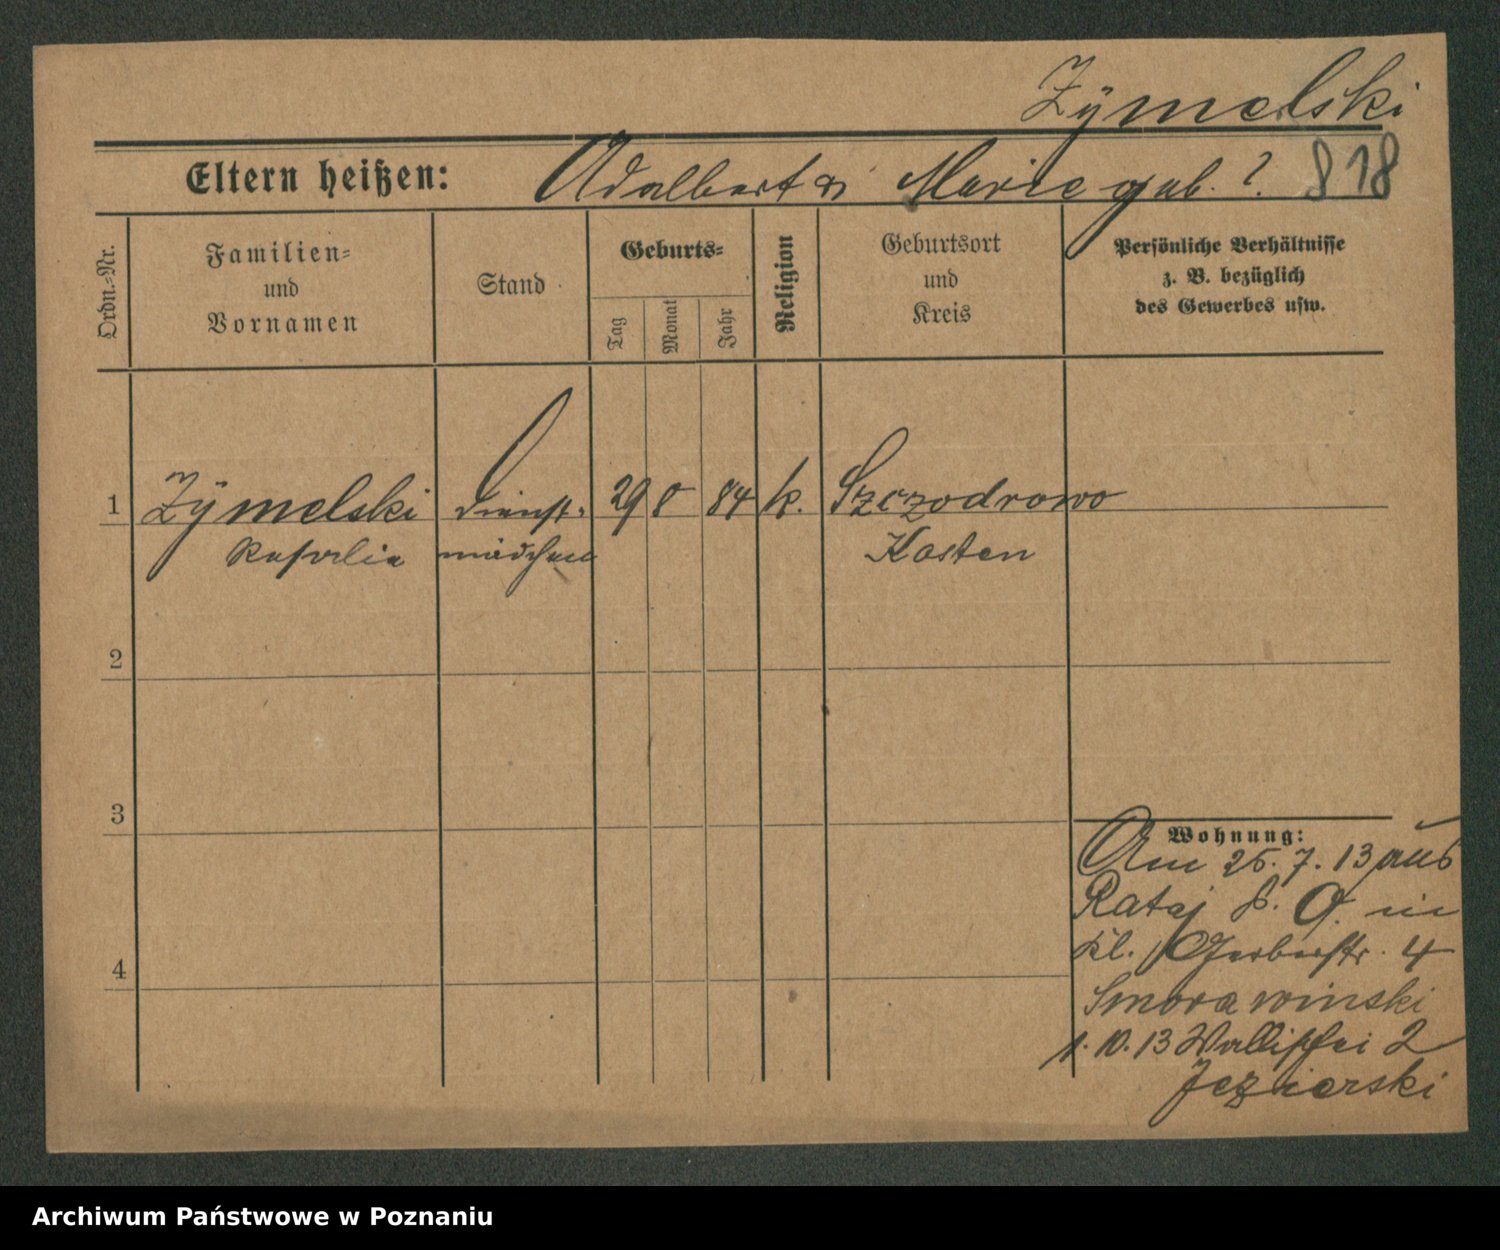 Zÿmelski
Eltern heißen: Adalbert & Marie geb. ? 818
Ordn.-Nr.
Familien-
und
Vornamen
Stand
Geburts-
Tag
Monat
Jahr
Religion
Geburtsort
und
Kreis
Persönliche Verhältnisse
z. B. bezüglich
des Gewerbes usw.
1 Zÿmelski Dienst- 29 8 84 k. Szczodrowo
Rosalie mädchen Kosten
2
3
4
Wohnung:
Am 26. 7. 13 aus
Rataj b. O. in
kl. Gerberstr. 4
Smorawinski
1. 10. 13 Wallischei 2
Jezierski
Archiwum Państwowe w Poznaniu